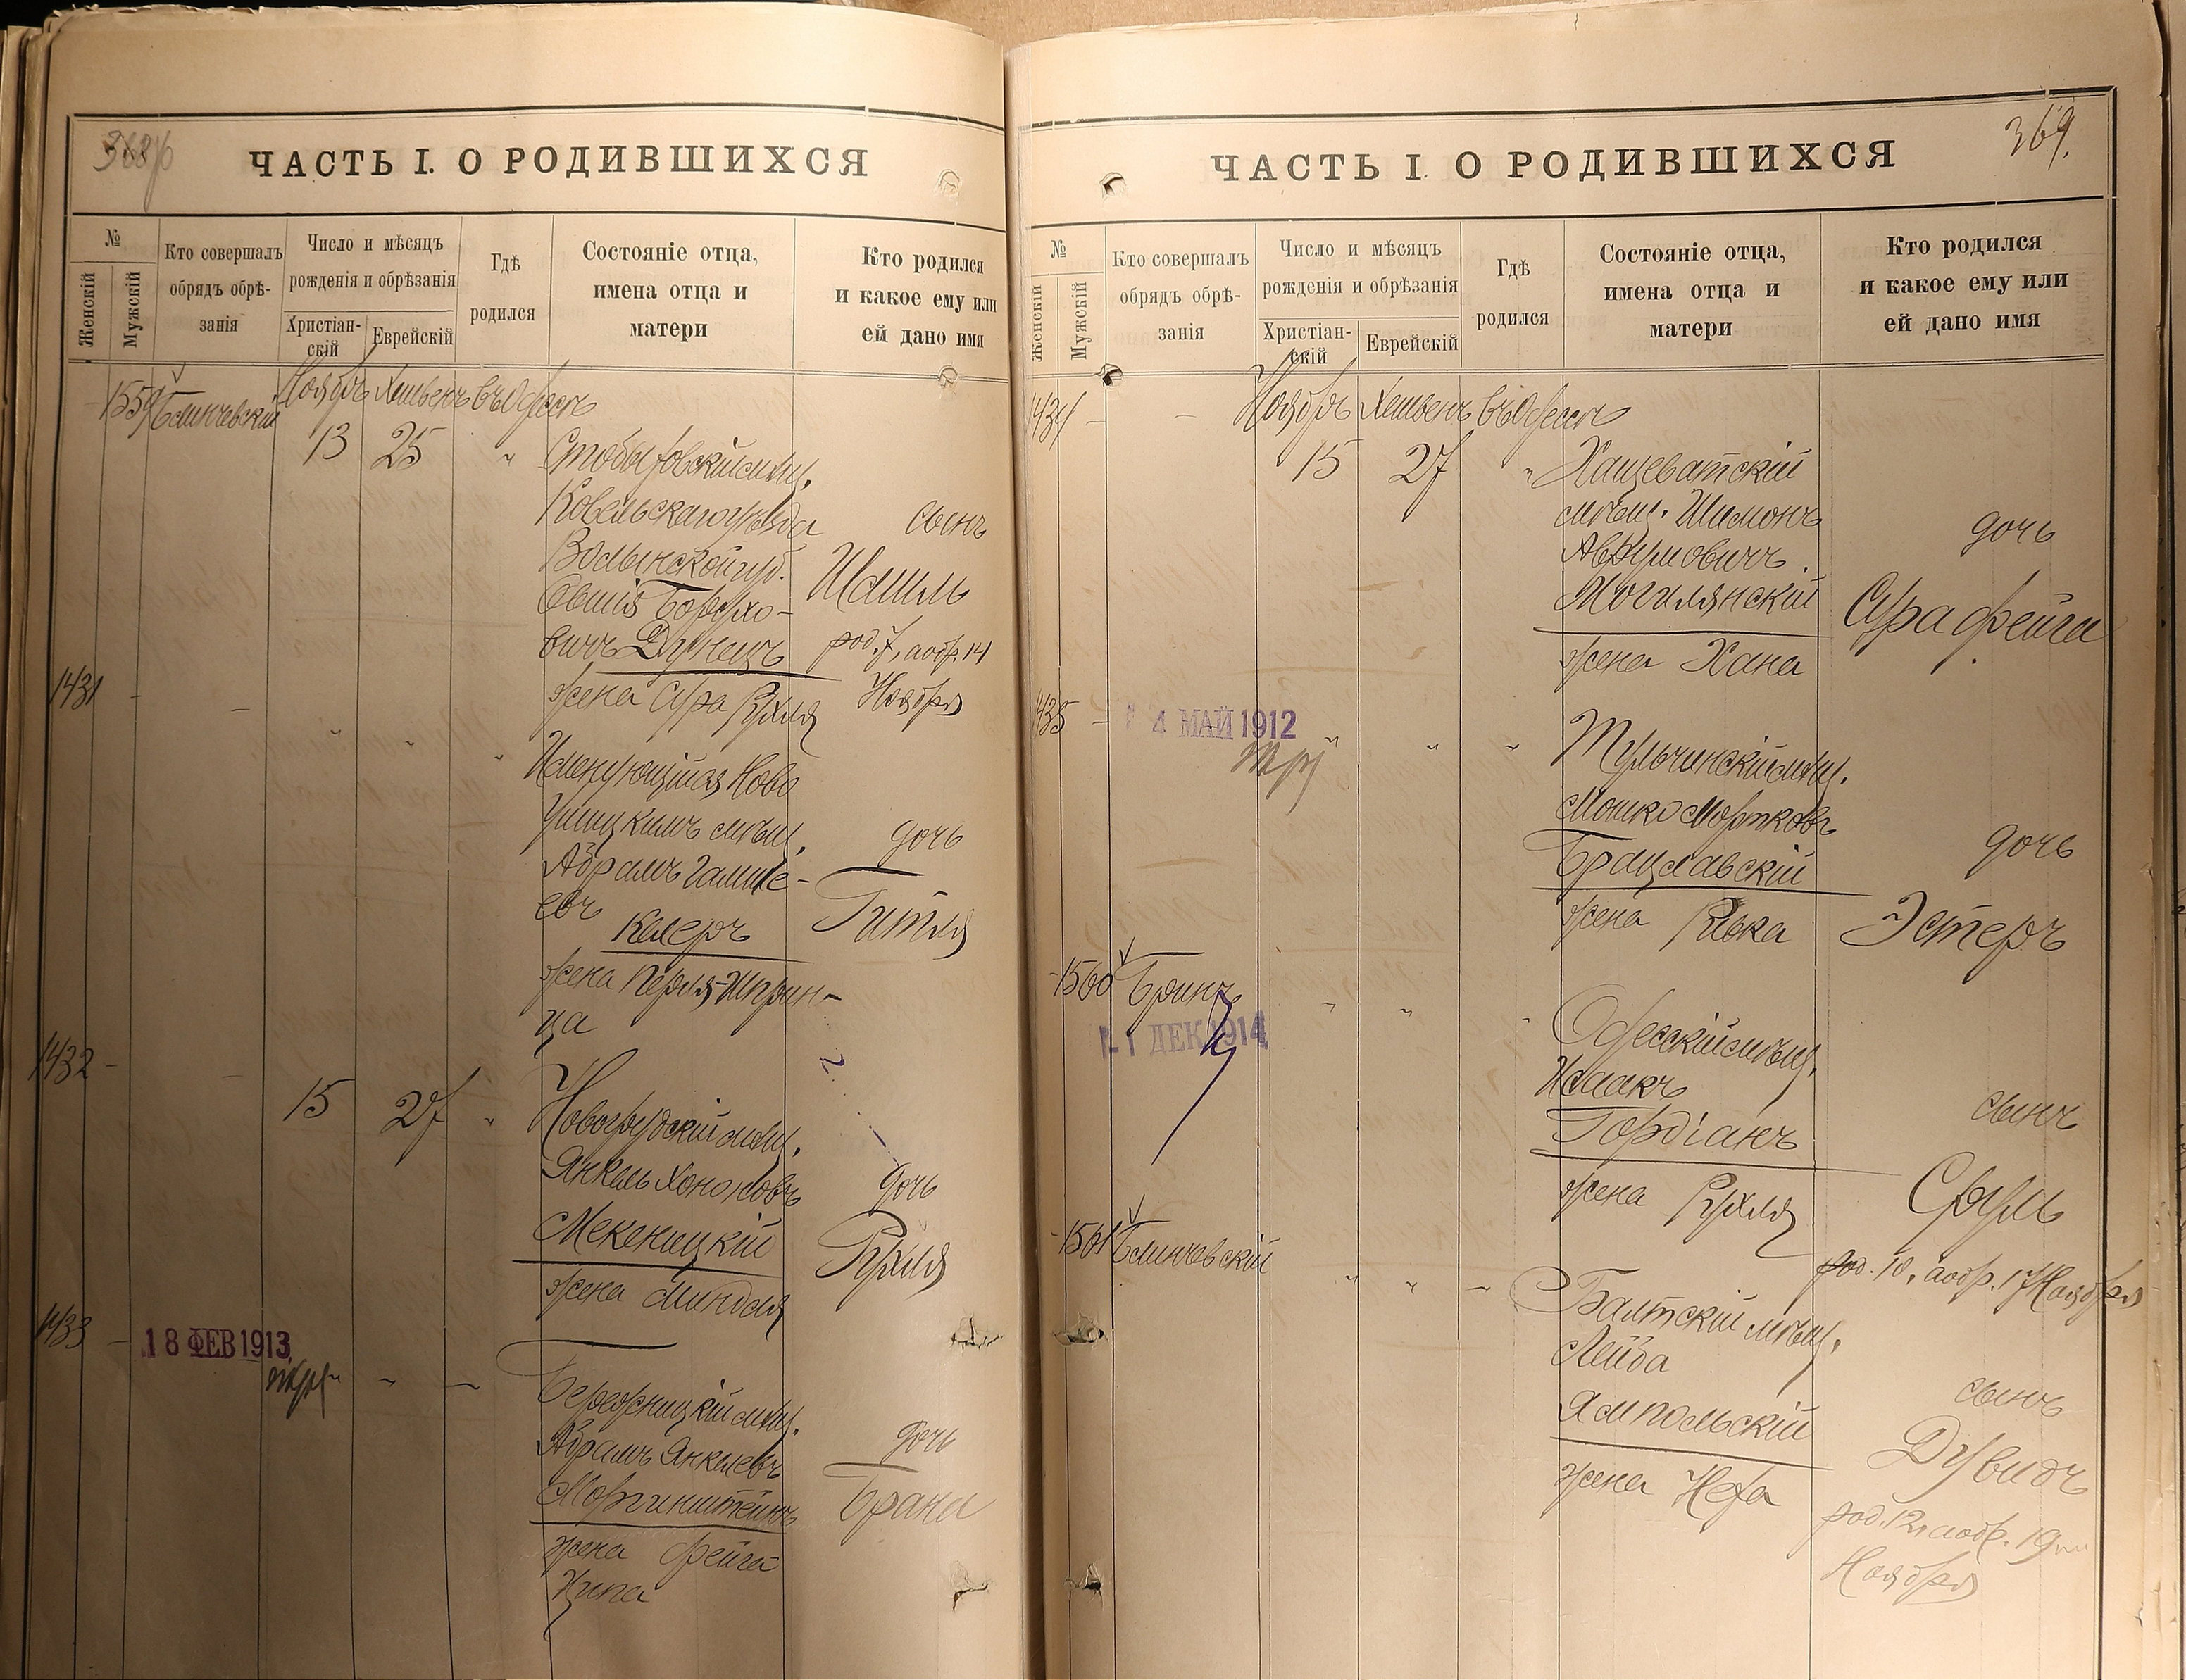 ЧАСТЬ I. О РОДИВШИХСЯ
№
Женскій
Мужскій
Кто совершалъ
обрядъ обрѣ-
занія
Число и мѣсяцъ
рожденія и обрѣзанія
Христіан-
скій
Еврейскій
Гдѣ
родился
Состояніе отца,
имена отца и
матери
Кто родился
и какое ему или
ей дано имя
1559 Блинчевскій Ноябрь Хешвенъ въ Одессѣ
13 25 "
Ковельскаго уѣзда
Волынской губ.
Овшія Борухо-
вичъ Дунецъ
жена Сура Рухля
сынъ
Ишіиль
род. 7, а обр. 14
Ноября
1431 - - " " "
Именующійся Ново
Ушицкимъ мѣщ.
Абрамъ
евъ Келеръ
жена Перля-Шприн-
ца
дочь
Гитля
1432 - - 15 27 "
Новогрудскій мѣщ.
Янкель Хононовъ
Мекеницкій
жена Миндля
дочь
Рухля
1433 -
18 ФЕВ 1913
Бережницкій мѣщ.
Абрамъ Янкелевъ
Моргинштейнъ
жена Фейга
Ципа
дочь
Брана
369.
ЧАСТЬ I. О РОДИВШИХСЯ
№
Женскій
Мужскій
Кто совершалъ
обрядъ обрѣ-
занія
Число и мѣсяцъ
рожденія и обрѣзанія
Христіан-
скій
Еврейскій
Гдѣ
родился
Состояніе отца,
имена отца и
матери
Кто родился
и какое ему или
ей дано имя
1434 - - Ноябрь Хешвенъ въ Одессѣ
15 27 "
Хащеватскій
мѣщ. Шимонъ
Аврумовичъ
Могилянскій
жена Хана
дочь
Сура Фейга
1435 -
4 МАЙ 1912
" " "
Тульчинскій мѣщ.
Мошко Мортковъ
Брацлавскій
жена Ривка
дочь
Эстеръ
1560 Бринъ " " "
1 ДЕК 1914
Одесскій мѣщ.
Исаакъ
Гордіанъ
жена Рухля
сынъ
Сруль
род. 10, а обр. 17 Ноября
1561 Блинчевскій " " "
Балтскій мѣщ.
Лейба
Ямпольскій
жена Неха
сынъ
Дувидъ
род. 12, а обр. 19
Ноября